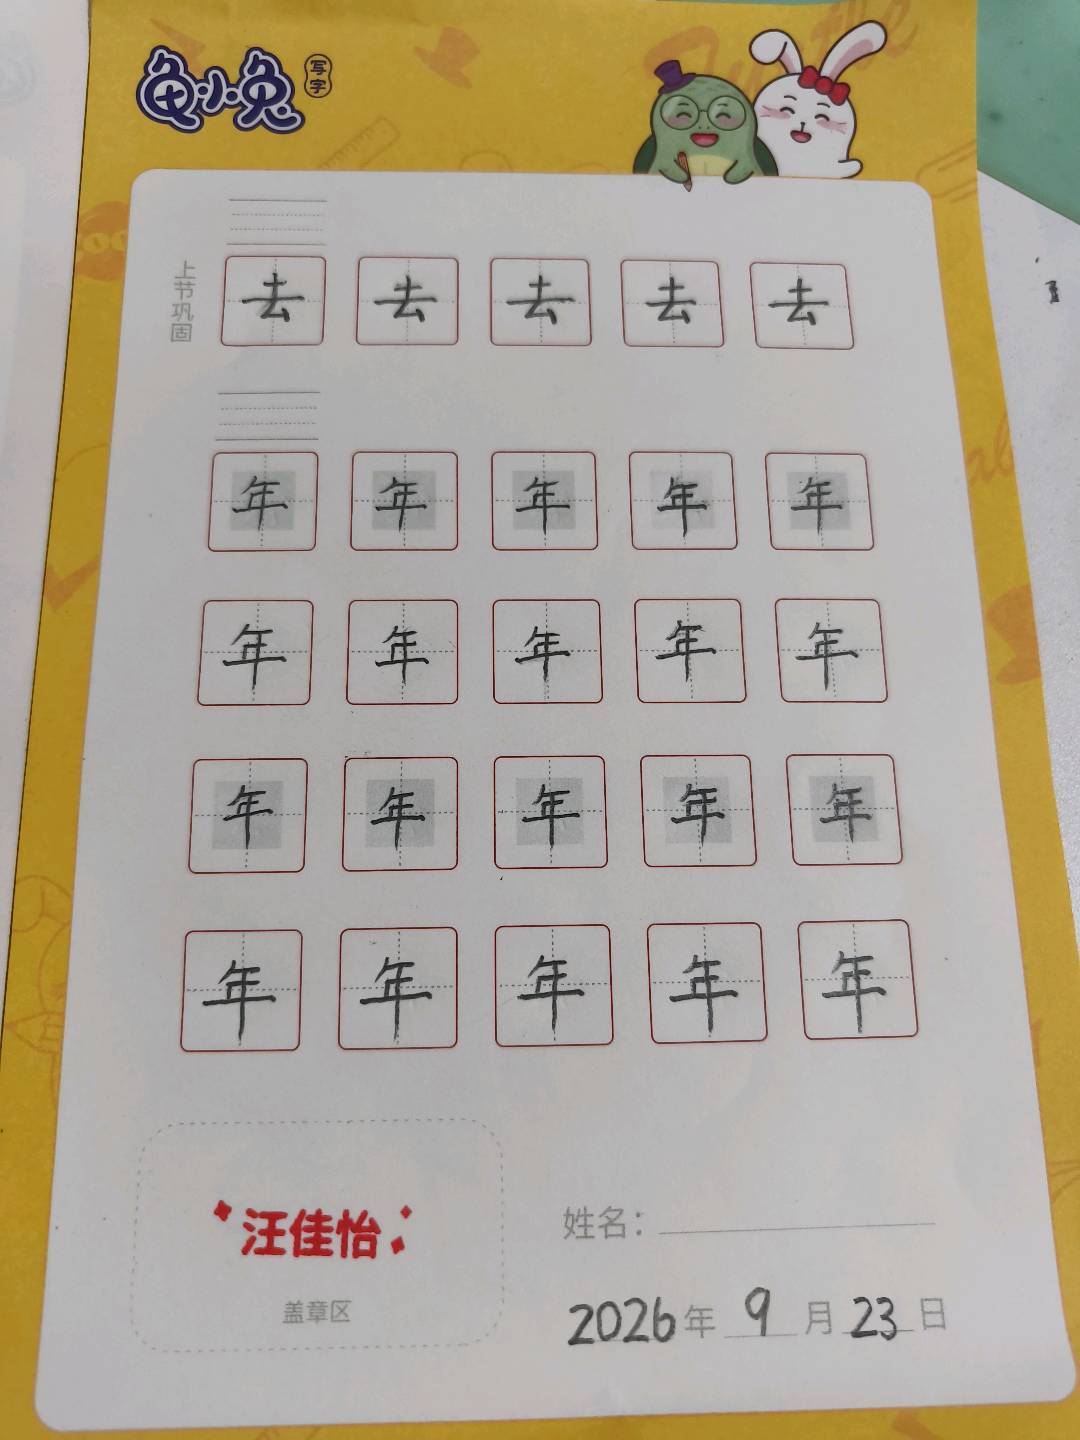 龟小兔 写字
上节巩固
去 去 去 去 去
年 年 年 年 年
年 年 年 年 年
年 年 年 年 年
年 年 年 年 年
汪佳怡
盖章区
姓名：
2026年 9 月 23 日